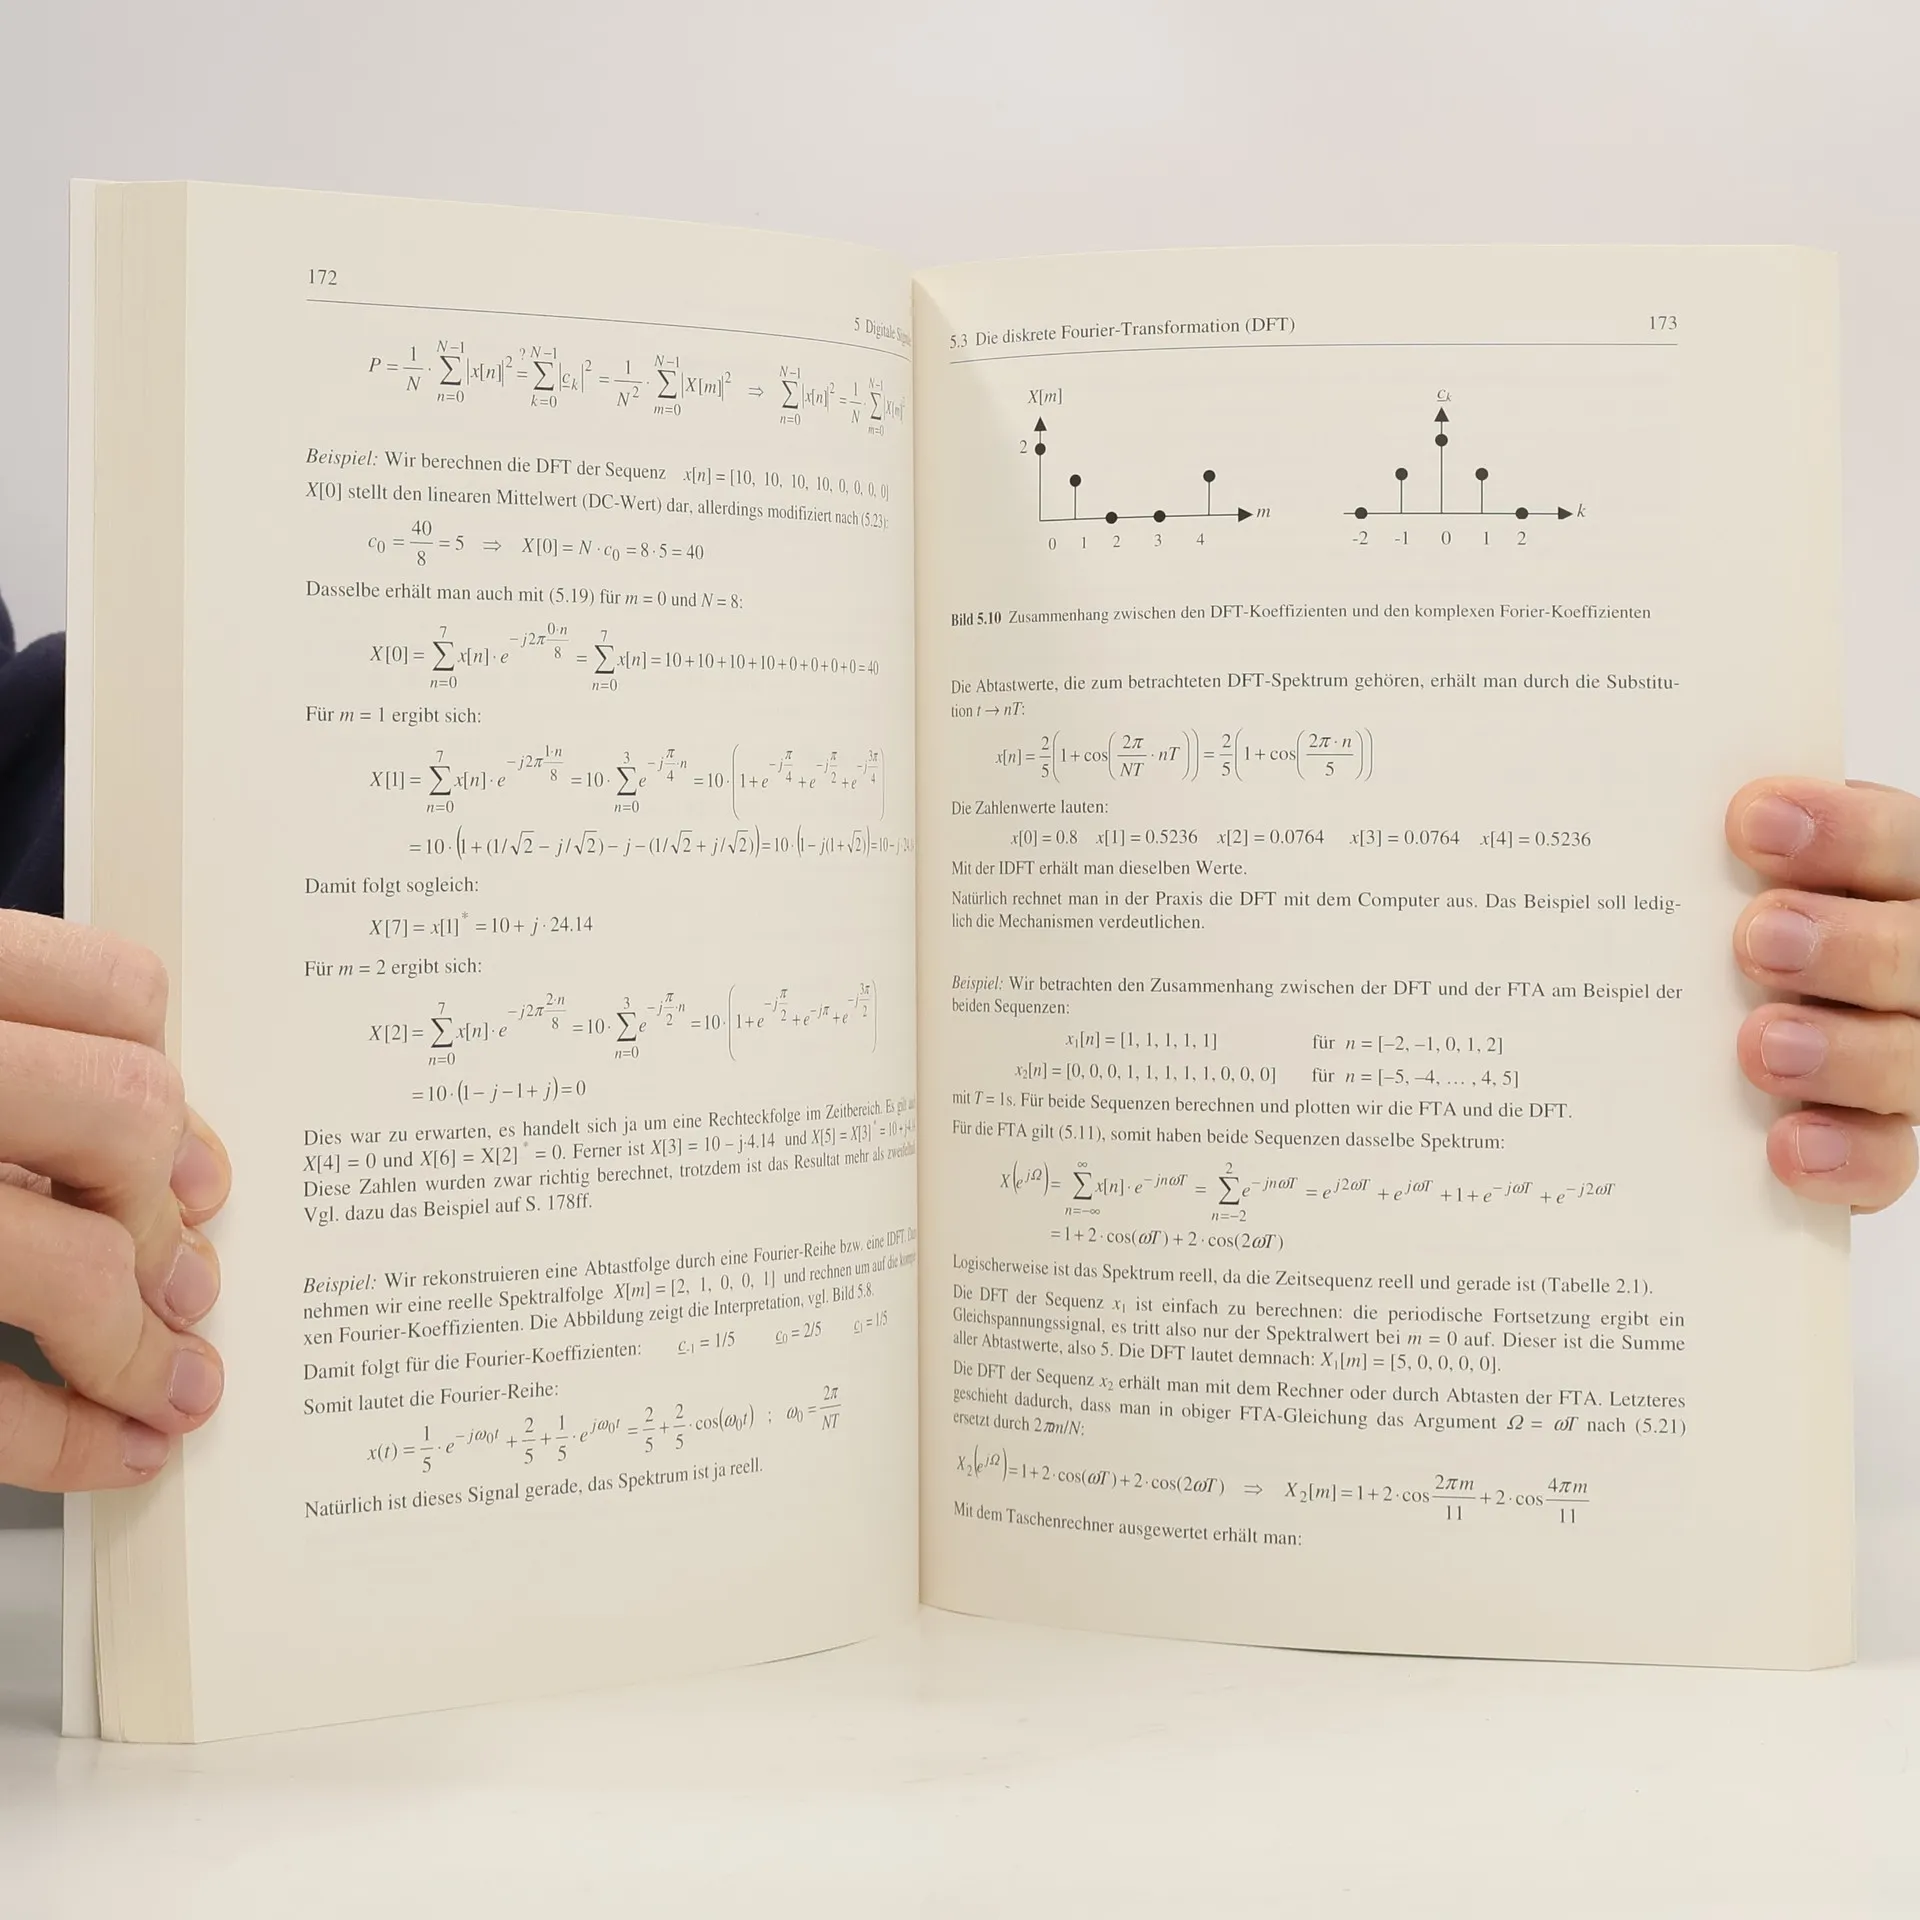 172
5 Digitale
P = 1/N · ∑_{n=0}^{N−1} |x[n]|² =? ∑_{k=0}^{N−1} |c_k|² = 1/N² · ∑_{m=0}^{N−1} |X[m]|² ⇒ ∑_{n=0}^{N−1} |x[n]|² = 1/N · ∑_{m=0}^{N−1} |X[m]|²
Beispiel: Wir berechnen die DFT der Sequenz x[n] = [10, 10, 10, 10, 0, 0, 0, 0]
X[0] stellt den linearen Mittelwert (DC-Wert) dar, allerdings modifiziert nach (5.23):
c₀ = 40/8 = 5 ⇒ X[0] = N · c₀ = 8 · 5 = 40
Dasselbe erhält man auch mit (5.19) für m = 0 und N = 8:
X[0] = ∑_{n=0}^{7} x[n] · e^{−j2π 0·n/8} = ∑_{n=0}^{7} x[n] = 10+10+10+10+0+0+0+0 = 40
Für m = 1 ergibt sich:
X[1] = ∑_{n=0}^{7} x[n] · e^{−j2π 1·n/8} = 10 · ∑_{n=0}^{3} e^{−j π/4 ·n} = 10 · (1 + e^{−j π/4} + e^{−j π/2} + e^{−j 3π/4})
= 10 · (1 + (1/√2 − j/√2) − j − (1/√2 + j/√2)) = 10 · (1 − j(1+√2)) = 10 − j·
Damit folgt sogleich:
X[7] = x[1]* = 10 + j · 24.14
Für m = 2 ergibt sich:
X[2] = ∑_{n=0}^{7} x[n] · e^{−j2π 2·n/8} = 10 · ∑_{n=0}^{3} e^{−j π/2 ·n} = 10 · (1 + e^{−j π/2} + e^{−jπ} + e^{−j 3π/2})
= 10 · (1 − j − 1 + j) = 0
Dies war zu erwarten, es handelt sich ja um eine Rechteckfolge im Zeitbereich. Es gilt
X[4] = 0 und X[6] = X[2]* = 0. Ferner ist X[3] = 10 – j·4.14 und X[5] = X[3]* = 10 +
Diese Zahlen wurden zwar richtig berechnet, trotzdem ist das Resultat mehr als
Vgl. dazu das Beispiel auf S. 178ff.
Beispiel: Wir rekonstruieren eine Abtastfolge durch eine Fourier-Reihe bzw. eine IDFT.
nehmen wir eine reelle Spektralfolge X[m] = [2, 1, 0, 0, 1] und rechnen um auf die
xen Fourier-Koeffizienten. Die Abbildung zeigt die Interpretation, vgl. Bild 5.8.
Damit folgt für die Fourier-Koeffizienten: c₋₁ = 1/5 c₀ = 2/5 c₁ = 1/5
Somit lautet die Fourier-Reihe:
x(t) = 1/5 · e^{−jω₀t} + 2/5 + 1/5 · e^{jω₀t} = 2/5 + 2/5 · cos(ω₀t) ; ω₀ = 2π/NT
Natürlich ist dieses Signal gerade, das Spektrum ist ja reell.
5.3 Die diskrete Fourier-Transformation (DFT) 173
X[m] c_k
2
m k
0 1 2 3 4 -2 -1 0 1 2
Bild 5.10 Zusammenhang zwischen den DFT-Koeffizienten und den komplexen Forier-Koeffizienten
Die Abtastwerte, die zum betrachteten DFT-Spektrum gehören, erhält man durch die Substitu-
tion t → nT:
x[n] = 2/5 (1 + cos(2π/NT · nT)) = 2/5 (1 + cos(2π · n/5))
Die Zahlenwerte lauten:
x[0] = 0.8 x[1] = 0.5236 x[2] = 0.0764 x[3] = 0.0764 x[4] = 0.5236
Mit der IDFT erhält man dieselben Werte.
Natürlich rechnet man in der Praxis die DFT mit dem Computer aus. Das Beispiel soll ledig-
lich die Mechanismen verdeutlichen.
Beispiel: Wir betrachten den Zusammenhang zwischen der DFT und der FTA am Beispiel der
beiden Sequenzen:
x₁[n] = [1, 1, 1, 1, 1] für n = [–2, –1, 0, 1, 2]
x₂[n] = [0, 0, 0, 1, 1, 1, 1, 1, 0, 0, 0] für n = [–5, –4, … , 4, 5]
mit T = 1s. Für beide Sequenzen berechnen und plotten wir die FTA und die DFT.
Für die FTA gilt (5.11), somit haben beide Sequenzen dasselbe Spektrum:
X(e^{jΩ}) = ∑_{n=−∞}^{∞} x[n] · e^{−jnωT} = ∑_{n=−2}^{2} e^{−jnωT} = e^{j2ωT} + e^{jωT} + 1 + e^{−jωT} + e^{−j2ωT}
= 1 + 2 · cos(ωT) + 2 · cos(2ωT)
Logischerweise ist das Spektrum reell, da die Zeitsequenz reell und gerade ist (Tabelle 2.1).
Die DFT der Sequenz x₁ ist einfach zu berechnen: die periodische Fortsetzung ergibt ein
Gleichspannungssignal, es tritt also nur der Spektralwert bei m = 0 auf. Dieser ist die Summe
aller Abtastwerte, also 5. Die DFT lautet demnach: X₁[m] = [5, 0, 0, 0, 0].
Die DFT der Sequenz x₂ erhält man mit dem Rechner oder durch Abtasten der FTA. Letzteres
geschieht dadurch, dass man in obiger FTA-Gleichung das Argument Ω = ωT nach (5.21)
ersetzt durch 2πm/N:
X₂(e^{jΩ}) = 1 + 2 · cos(ωT) + 2 · cos(2ωT) ⇒ X₂[m] = 1 + 2 · cos 2πm/11 + 2 · cos 4πm/11
Mit dem Taschenrechner ausgewertet erhält man: